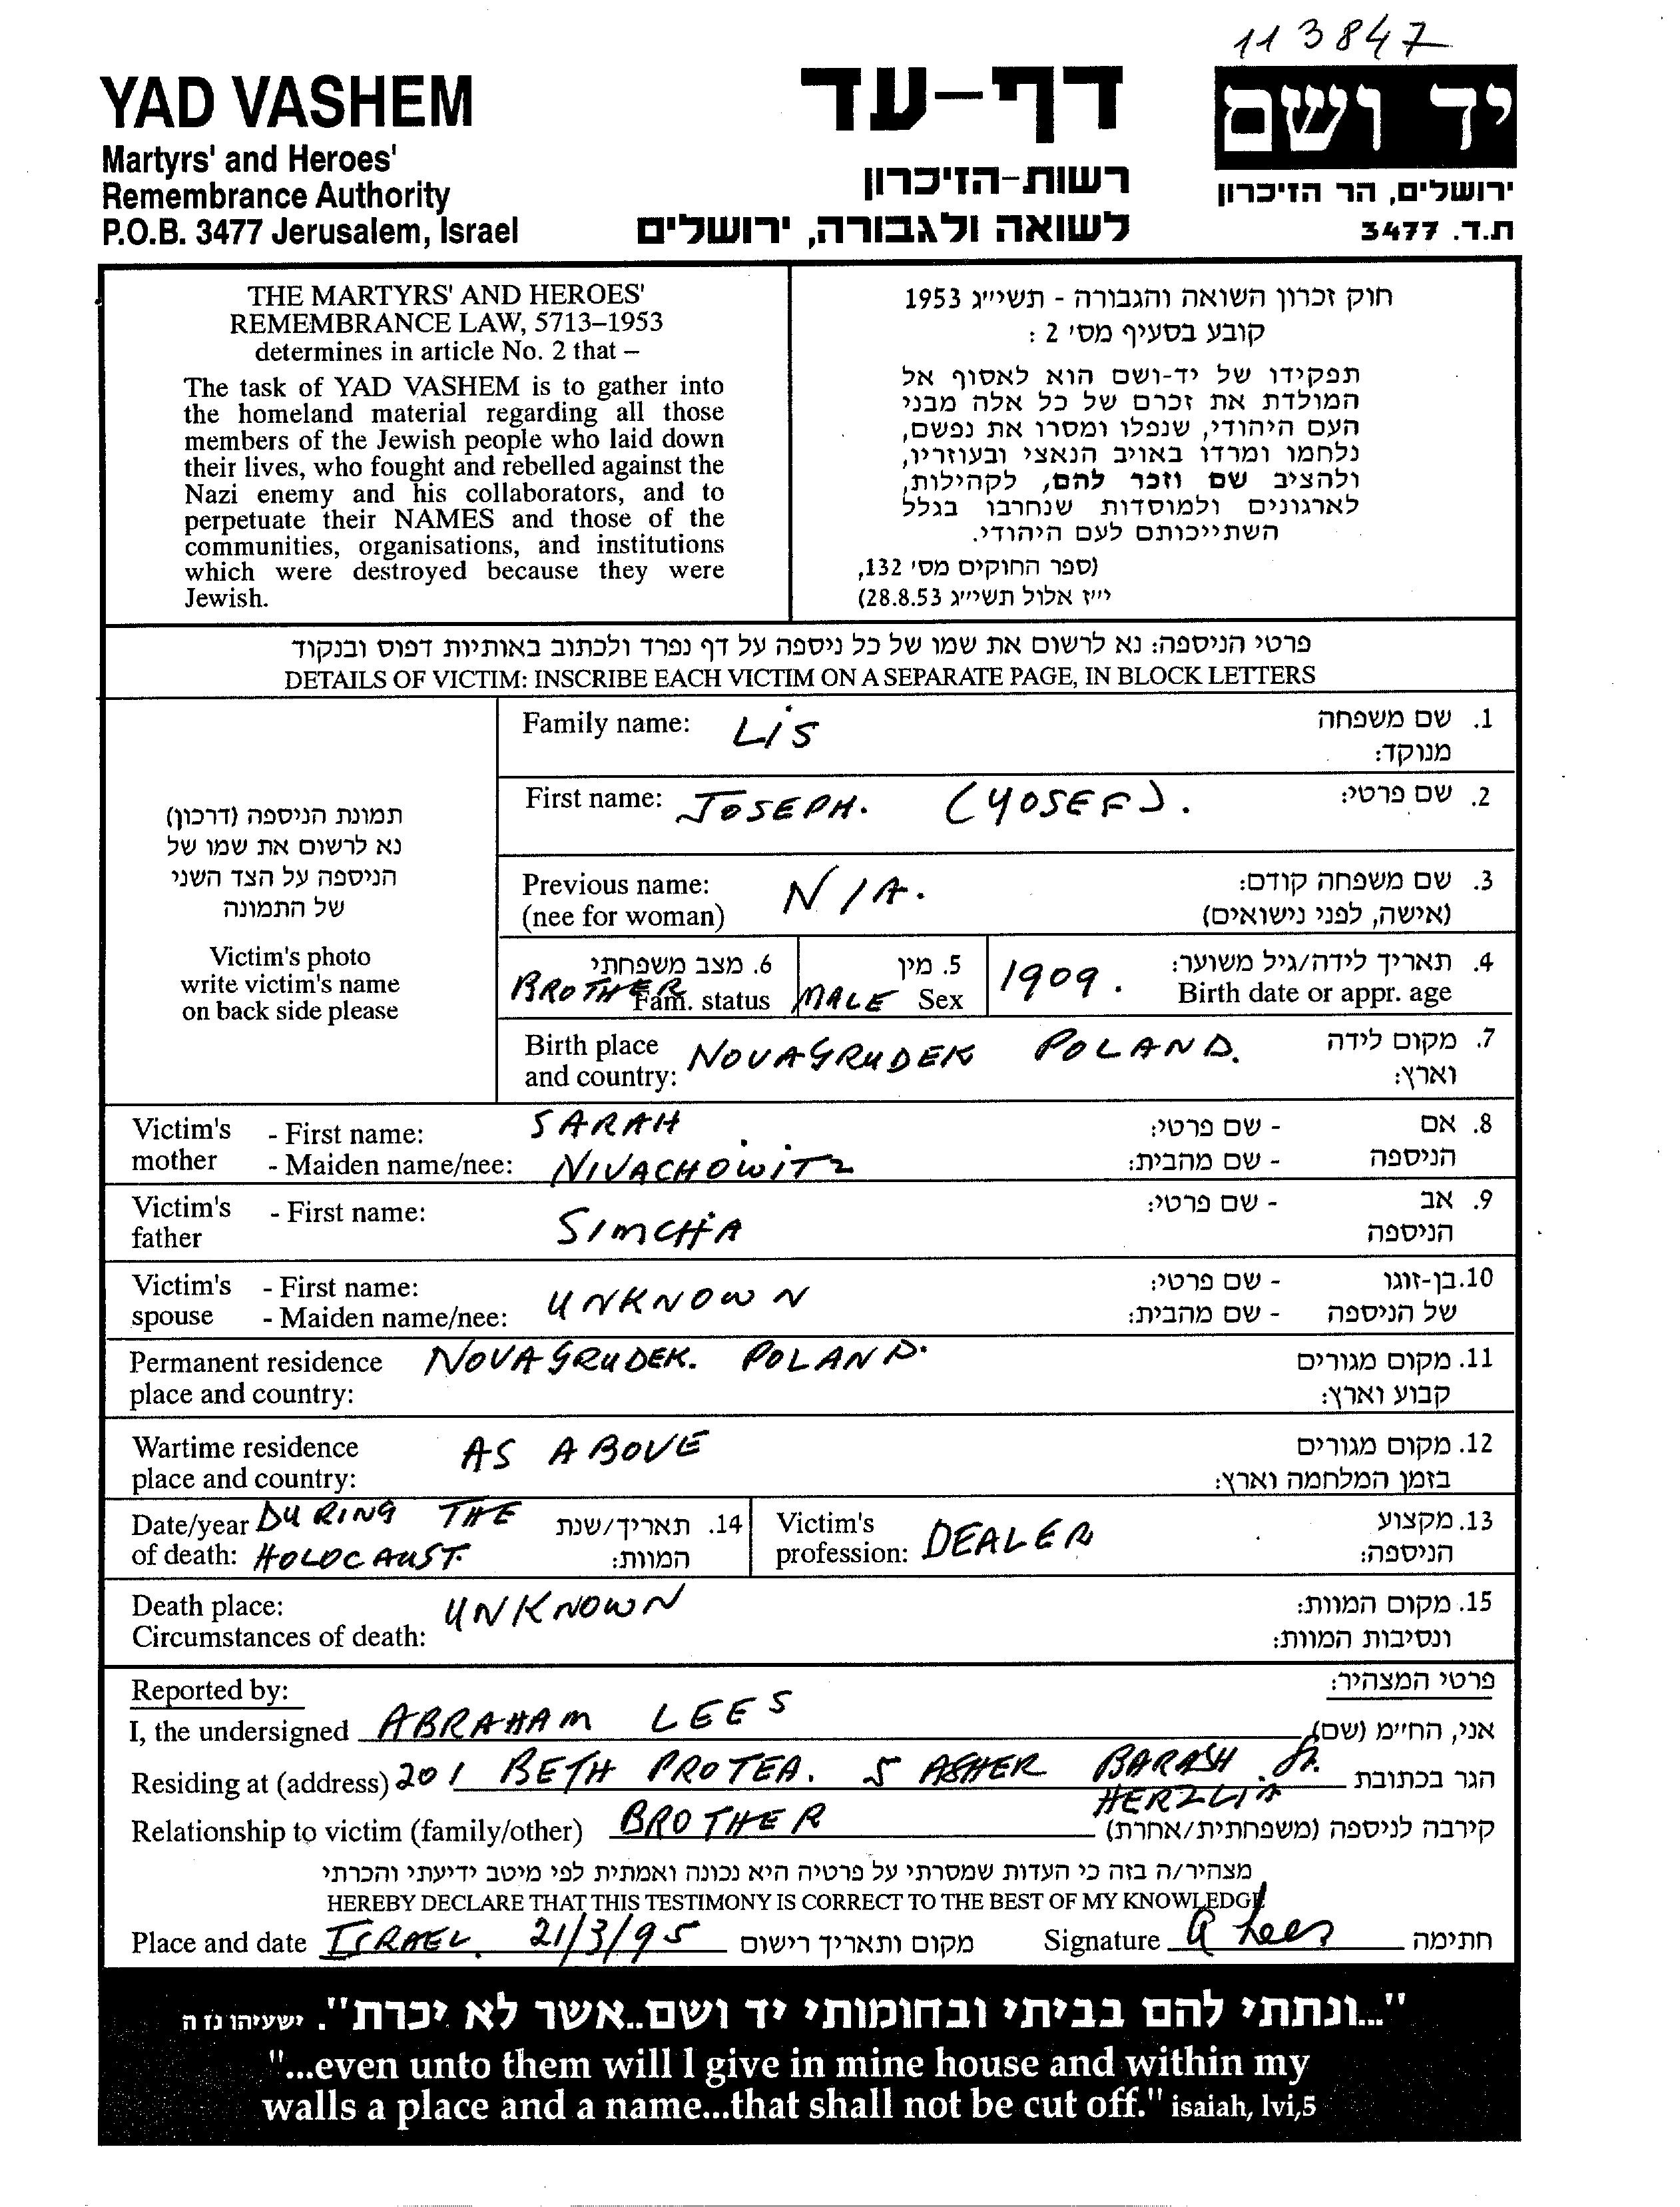 113847
YAD VASHEM
Martyrs' and Heroes'
Remembrance Authority
P.O.B. 3477 Jerusalem, Israel
דף-עד
רשות-הזיכרון
לשואה ולגבורה, ירושלים
יד ושם
ירושלים, הר הזיכרון
ת.ד. 3477
THE MARTYRS' AND HEROES'
REMEMBRANCE LAW, 5713–1953
determines in article No. 2 that –
The task of YAD VASHEM is to gather into
the homeland material regarding all those
members of the Jewish people who laid down
their lives, who fought and rebelled against the
Nazi enemy and his collaborators, and to
perpetuate their NAMES and those of the
communities, organisations, and institutions
which were destroyed because they were
Jewish.
חוק זכרון השואה והגבורה - תשי״ג 1953
קובע בסעיף מס׳ 2 :
תפקידו של יד-ושם הוא לאסוף אל
המולדת את זכרם של כל אלה מבני
העם היהודי, שנפלו ומסרו את נפשם,
נלחמו ומרדו באויב הנאצי ובעוזריו,
ולהציב שם וזכר להם, לקהילות,
לארגונים ולמוסדות שנחרבו בגלל
השתייכותם לעם היהודי.
(ספר החוקים מס׳ 132,
י״ז אלול תשי״ג 28.8.53)
פרטי הניספה: נא לרשום את שמו של כל ניספה על דף נפרד ולכתוב באותיות דפוס ובנקוד
DETAILS OF VICTIM: INSCRIBE EACH VICTIM ON A SEPARATE PAGE, IN BLOCK LETTERS
תמונת הניספה (דרכון)
נא לרשום את שמו של
הניספה על הצד השני
של התמונה
Victim's photo
write victim's name
on back side please
Family name: LIS 1. שם משפחה
מנוקד:
First name: JOSEPH. (YOSEF). 2. שם פרטי:
Previous name: N/A. 3. שם משפחה קודם:
(nee for woman) (אישה, לפני נישואים)
6. מצב משפחתי 5. מין 4. תאריך לידה/גיל משוער:
BROTHER Fam. status MALE Sex 1909. Birth date or appr. age
Birth place NOVAGRUDEK POLAND. 7. מקום לידה
and country: וארץ:
Victim's - First name: SARAH - שם פרטי: 8. אם
mother - Maiden name/nee: NIVACHOWITZ - שם מהבית: הניספה
Victim's - First name: SIMCHA - שם פרטי: 9. אב
father הניספה
Victim's - First name: UNKNOWN - שם פרטי: 10. בן-זוגו
spouse - Maiden name/nee: - שם מהבית: של הניספה
Permanent residence NOVAGRUDEK. POLAND. 11. מקום מגורים
place and country: קבוע וארץ:
Wartime residence AS ABOVE 12. מקום מגורים
place and country: בזמן המלחמה וארץ:
Date/year DURING THE 14. תאריך/שנת
of death: HOLOCAUST. המוות:
Victim's 13. מקצוע
profession: DEALER הניספה:
Death place: UNKNOWN 15. מקום המוות:
Circumstances of death: ונסיבות המוות:
Reported by: פרטי המצהיר:
I, the undersigned ABRAHAM LEES אני, החי״מ (שם)
Residing at (address) 201 BETH PROTEA. 5 ASHER BARASH St. הגר בכתובת
HERZLIA
Relationship to victim (family/other) BROTHER קירבה לניספה (משפחתית/אחרת)
מצהיר/ה בזה כי העדות שמסרתי על פרטיה היא נכונה ואמתית לפי מיטב ידיעתי והכרתי
HEREBY DECLARE THAT THIS TESTIMONY IS CORRECT TO THE BEST OF MY KNOWLEDGE
Place and date ISRAEL. 21/3/95 מקום ותאריך רישום Signature A Lees חתימה
"...ונתתי להם בביתי ובחומותי יד ושם..אשר לא יכרת". ישעיהו נז ה
"...even unto them will I give in mine house and within my
walls a place and a name...that shall not be cut off." isaiah, lvi,5